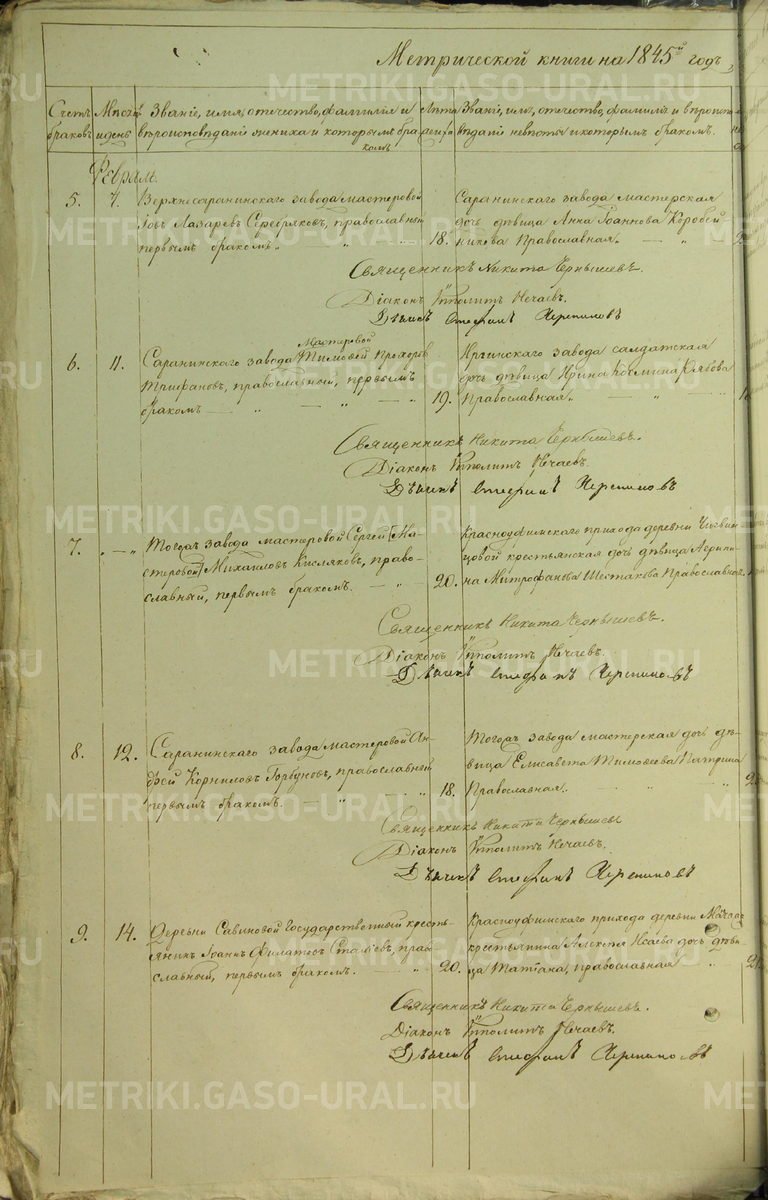 Метрической книги на 1845й годъ,
Счетъ браковъ
Мѣсяцъ и день
Званіе, имя, отечество, фамилія и вѣроисповѣданіе жениха и которымъ бракомъ
Лѣта жениха
Званіе, имя, отечество, фамилія и вѣроисповѣданіе невѣсты и которымъ бракомъ.
Февраль
5. 7. Верхнесаранинскаго завода мастеровой
Іовъ Лазаревъ Серебряковъ, православный
первымъ бракомъ.
18.
Саранинскаго завода мастерская
дочь дѣвица Анна Іоаннова Коробей
никова Православная.
Священникъ Никита Чернышевъ.
Діаконъ Ипполитъ Нечаевъ.
Дьячекъ Стефанъ Черепановъ
6. 11. Саранинскаго завода Мастеровой Тимофей Прохоровъ
Трифановъ, православный, первымъ
бракомъ
19.
Иргинскаго завода салдатская
дочь дѣвица Ирина Козмина
Православная.
Священникъ Никита Чернышевъ.
Діаконъ Ипполитъ Нечаевъ.
Дьячекъ Стефанъ Черепановъ
7. „ — „ Тогожъ завода мастеровой Сергей [Ма-
стеровой] Михайловъ Кисляковъ, право-
славный, первымъ бракомъ.
20.
Красноуфимскаго прихода деревни
крестьянская дочь дѣвица Агрипи-
на Митрофанова Шестакова Православная.
Священникъ Никита Чернышевъ.
Діаконъ Ипполитъ Нечаевъ.
Дьячекъ Стефанъ Черепановъ
8. 12. Саранинскаго завода мастеровой Ан-
дрей Корниловъ Горбуновъ, православный
первымъ бракомъ.
18.
Тогожъ завода мастерская дочь дѣ-
вица Елисавета Тимофеева
Православная.
Священникъ Никита Чернышевъ
Діаконъ Ипполитъ Нечаевъ.
Дьячекъ Стефанъ Черепановъ
9. 14. Деревни Савиновой Государственный кресть-
янинъ Іоаннъ Филатовъ, право
славный, первымъ бракомъ.
20.
Красноуфимскаго прихода деревни
крестьянина Алексѣя Исаева дочь дѣви-
ца Татіана, православная
Священникъ Никита Чернышевъ.
Діаконъ Ипполитъ Нечаевъ.
Дьячекъ Стефанъ Черепановъ
METRIKI.GASO-URAL.RU